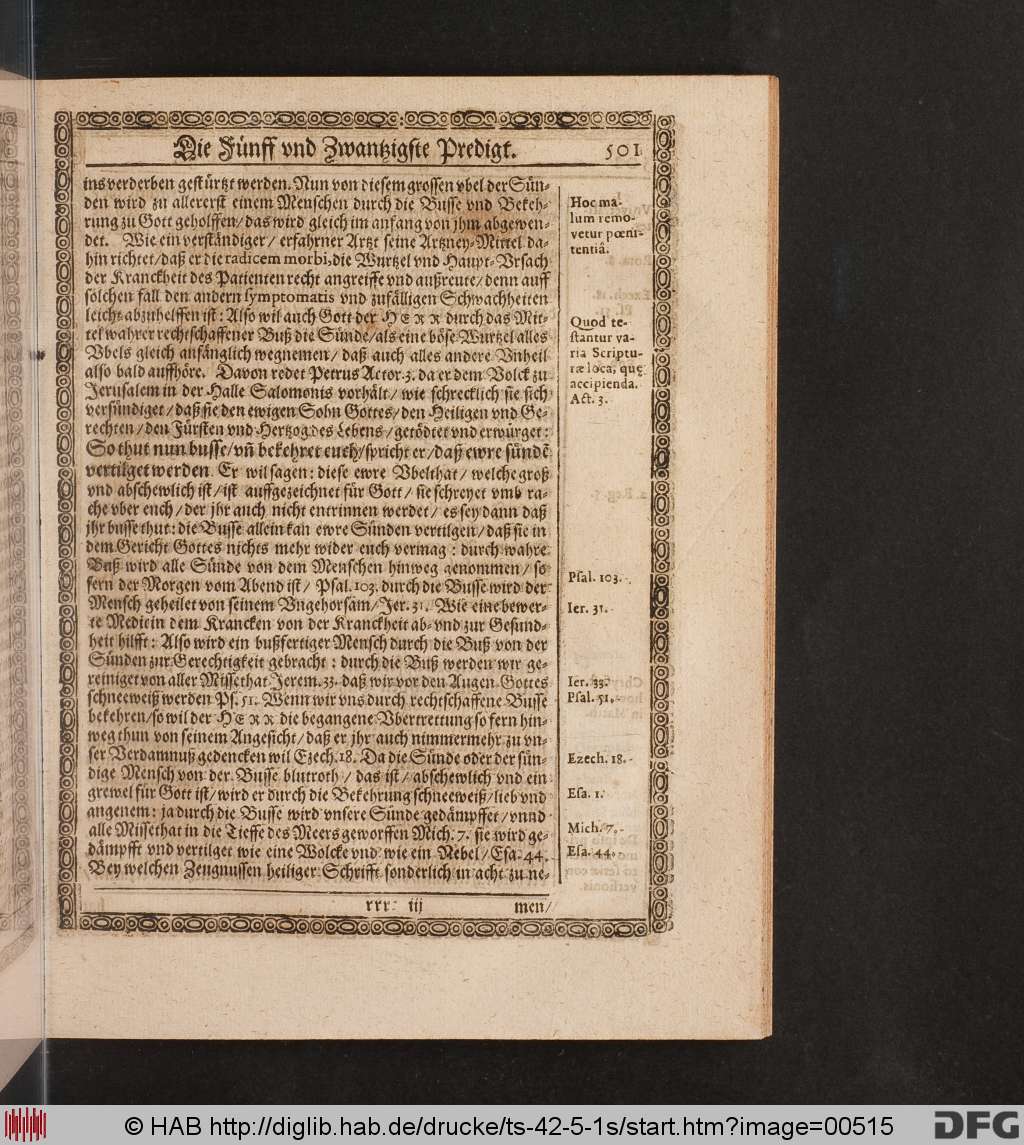 Die Fünff vnd Zwantzigste Predigt. 501
ins verderben gestürtzt werden. Nun von diesem grossen vbel der Sün-
den wird zu allererst einem Menschen durch die Busse vnd Bekeh-
rung zu Gott geholffen/ das wird gleich im anfang von jhm abgewen-
det. Wie ein verständiger/ erfahrner Artzt seine Artzney-Mittel da-
hin richtet/ daß er die radicem morbi, die Wurtzel vnd Haupt-Vrsach
der Kranckheit des Patienten recht angreiffe vnd außreute/ denn auff
solchen fall den andern symptomatis vnd zufälligen Schwachheiten
leicht abzuhelffen ist: Also wil auch Gott der HERR durch das Mit-
tel wahrer rechtschaffener Buß die Sünde/ als eine böse Wurtzel alles
Vbels gleich anfänglich wegnemen/ daß auch alles andere Vnheil
also bald auffhöre. Davon redet Petrus Actor. 3. da er dem Volck zu
Jerusalem in der Halle Salomonis vorhält/ wie schrecklich sie sich
versündiget/ daß sie den ewigen Sohn Gottes/ den Heiligen vnd Ge-
rechten/ den Fürsten vnd Hertzog des Lebens/ getödtet vnd erwürget:
So thut nun busse/ vñ bekehret euch/ spricht er/ daß ewre sündē
vertilget werden. Er wil sagen: diese ewre Vbelthat/ welche groß
vnd abschewlich ist/ ist auffgezeichnet für Gott/ sie schreyet vmb ra-
che vber euch/ der jhr auch nicht entrinnen werdet/ es sey dann daß
jhr busse thut: die Busse allein kan ewre Sünden vertilgen/ daß sie in
dem Gericht Gottes nichts mehr wider euch vermag: durch wahre
Buß wird alle Sünde von dem Menschen hinweg genommen/ so
fern der Morgen vom Abend ist/ Psal. 103. durch die Busse wird der
Mensch geheilet von seinem Vngehorsam/ Jer. 31. Wie eine bewer-
te Medicin dem Krancken von der Kranckheit ab- vnd zur Gesund-
heit hilfft: Also wird ein bußfertiger Mensch durch die Buß von der
Sünden zur Gerechtigkeit gebracht: durch die Buß werden wir ge-
reiniget von aller Missethat Jerem. 33. daß wir vor den Augen Gottes
schneeweiß werden Ps. 51. Wenn wir vns durch rechtschaffene Busse
bekehren/ so wil der HERR die begangene Vbertrettung so fern hin-
weg thun von seinem Angesicht/ daß er jhr auch nimmermehr zu vn-
ser Verdamnuß gedencken wil Ezech. 18. Da die Sünde oder der sün-
dige Mensch von der Busse blutroth/ das ist/ abschewlich vnd ein
grewel für Gott ist/ wird er durch die Bekehrung schneeweiß/ lieb vnd
angenem: ja durch die Busse wird vnsere Sünde gedämpffet/ vnnd
alle Missethat in die Tieffe des Meers geworffen Mich. 7. sie wird ge-
dämpfft vnd vertilget wie eine Wolcke vnd wie ein Nebel/ Esa. 44.
Bey welchen Zeugnussen heiliger Schrifft sonderlich in acht zu ne-
rrr iij men/
Hoc ma-
lum remo-
vetur pœni-
tentiâ.
Quod te-
stantur va-
ria Scriptu-
ræ loca, quę
accipienda.
Act. 3.
Psal. 103.
Ier. 31.
Ier. 33.
Psal. 51.
Ezech. 18.
Esa. 1.
Mich. 7.
Esa. 44.
© HAB http://diglib.hab.de/drucke/ts-42-5-1s/start.htm?image=00515
DFG